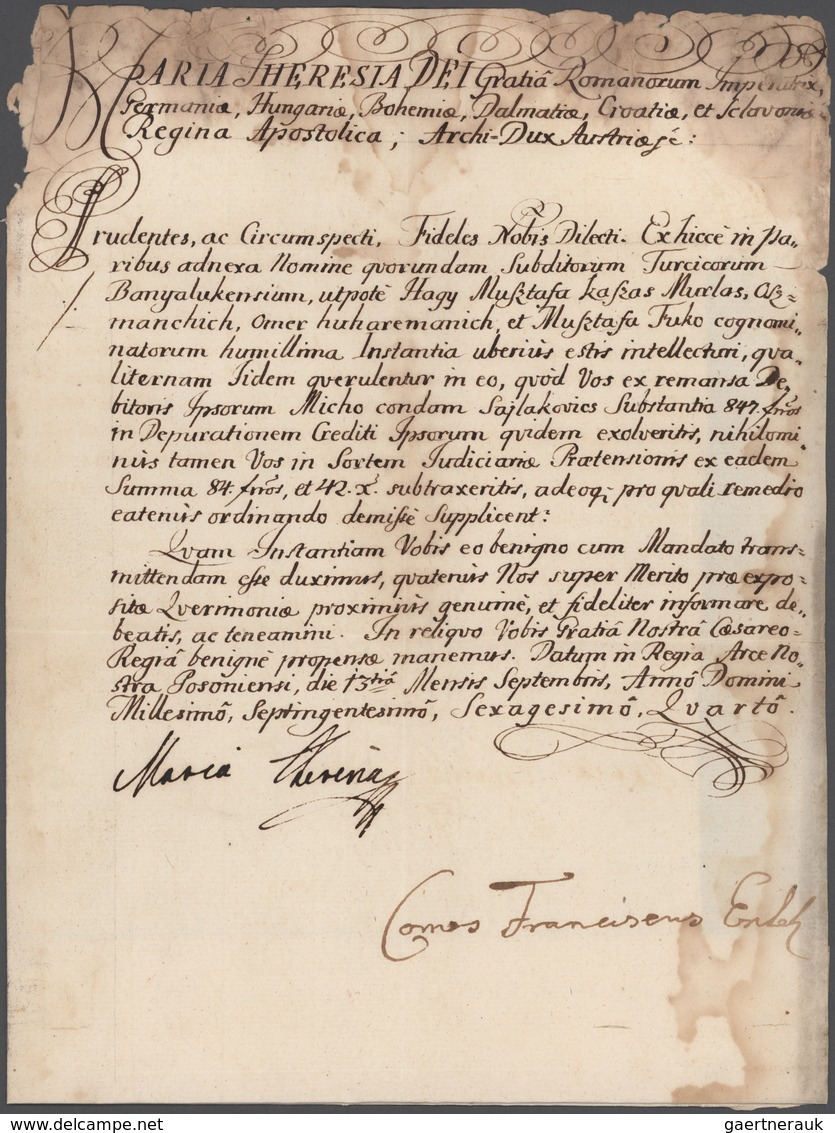 MARIA THERESIA DEI Gratiâ Romanorum Imperatrix,
Germaniæ, Hungariæ, Bohemiæ, Dalmatiæ, Croatiæ, et Sclavoniæ
Regina Apostolica; Archi-Dux Austriæ &c:
Prudentes, ac Circumspecti, Fideles Nobis Dilecti. Ex hiccè in Pa-
ribus adnexa Nomine quorundam Subditorum Turcicorum
Banyalukensium, utpotè Hagy Musztafa kaszas Muxlas, Osz=
manchich, Omer huharemanich, et Musztafa Fuko cognomi=
natorum humillima Instantia uberiùs estis intellecturi, qua=
liternam Iidem querulentur in eo, quòd Vos ex remansa De=
bitoris Ipsorum Micho condam Sajlakovics Substantia 847. frñôs
in Depurationem Crediti Ipsorum quidem exolveritis, nihilomi=
nùs tamen Vos in Sortem Judiciariæ Prætensionis ex eadem
Summa 84. frñôs, et 42. x̃. subtraxeritis, adeoq; pro quali remedio
eatenùs ordinando demissè Supplicent:
Quam Instantiam Vobis eo benigno cum Mandato trans=
mittendam esse duximus, quatenùs Nos super Merito præexpo=
sitæ Querimoniæ proximiùs genuinè, et fideliter informare de=
beatis, ac teneamini. In reliquo Vobis Gratiâ Nostrâ Cæsareo=
Regiâ benignè propensæ manemus. Datum in Regia Arce No=
stra Posoniensi, die 13tiâ Mensis Septembris, Annô Domini
Millesimô, Septingentesimô, Sexagesimô, Quartô.
Maria Theresia
Comes Franciscus
gaertnerauk